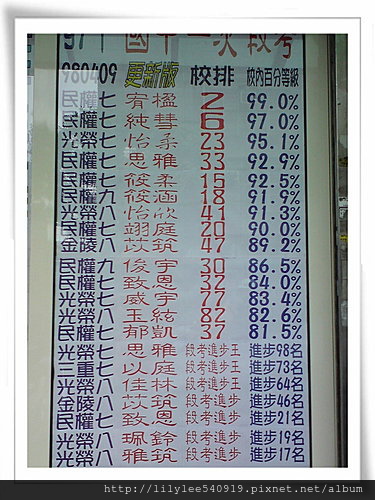 971 國中一次段考
980409 更新版 校排 校內百分等級
民權七 宥楹 2 99.0%
民權七 純彗 6 97.0%
光榮七 怡柔 23 95.1%
民權七 思雅 33 92.9%
民權七 筱柔 15 92.5%
民權九 筱涵 18 91.9%
光榮八 怡欣 41 91.3%
民權七 翊庭 20 90.0%
金陵八 苡筑 47 89.2%
民權九 俊宇 30 86.5%
民權七 致恩 32 84.0%
光榮七 威宇 77 83.4%
光榮八 玉紘 82 82.6%
民權七 郁凱 37 81.5%
光榮七 思雅 段考進步王 進步98名
三重七 以庭 段考進步王 進步73名
光榮八 佳林 段考進步王 進步64名
金陵八 苡筑 段考進步 進步46名
民權七 致恩 段考進步 進步21名
光榮八 珮鈴 段考進步 進步19名
光榮八 雅筑 段考進步 進步17名
http://lilylee540919.pixnet.net/album